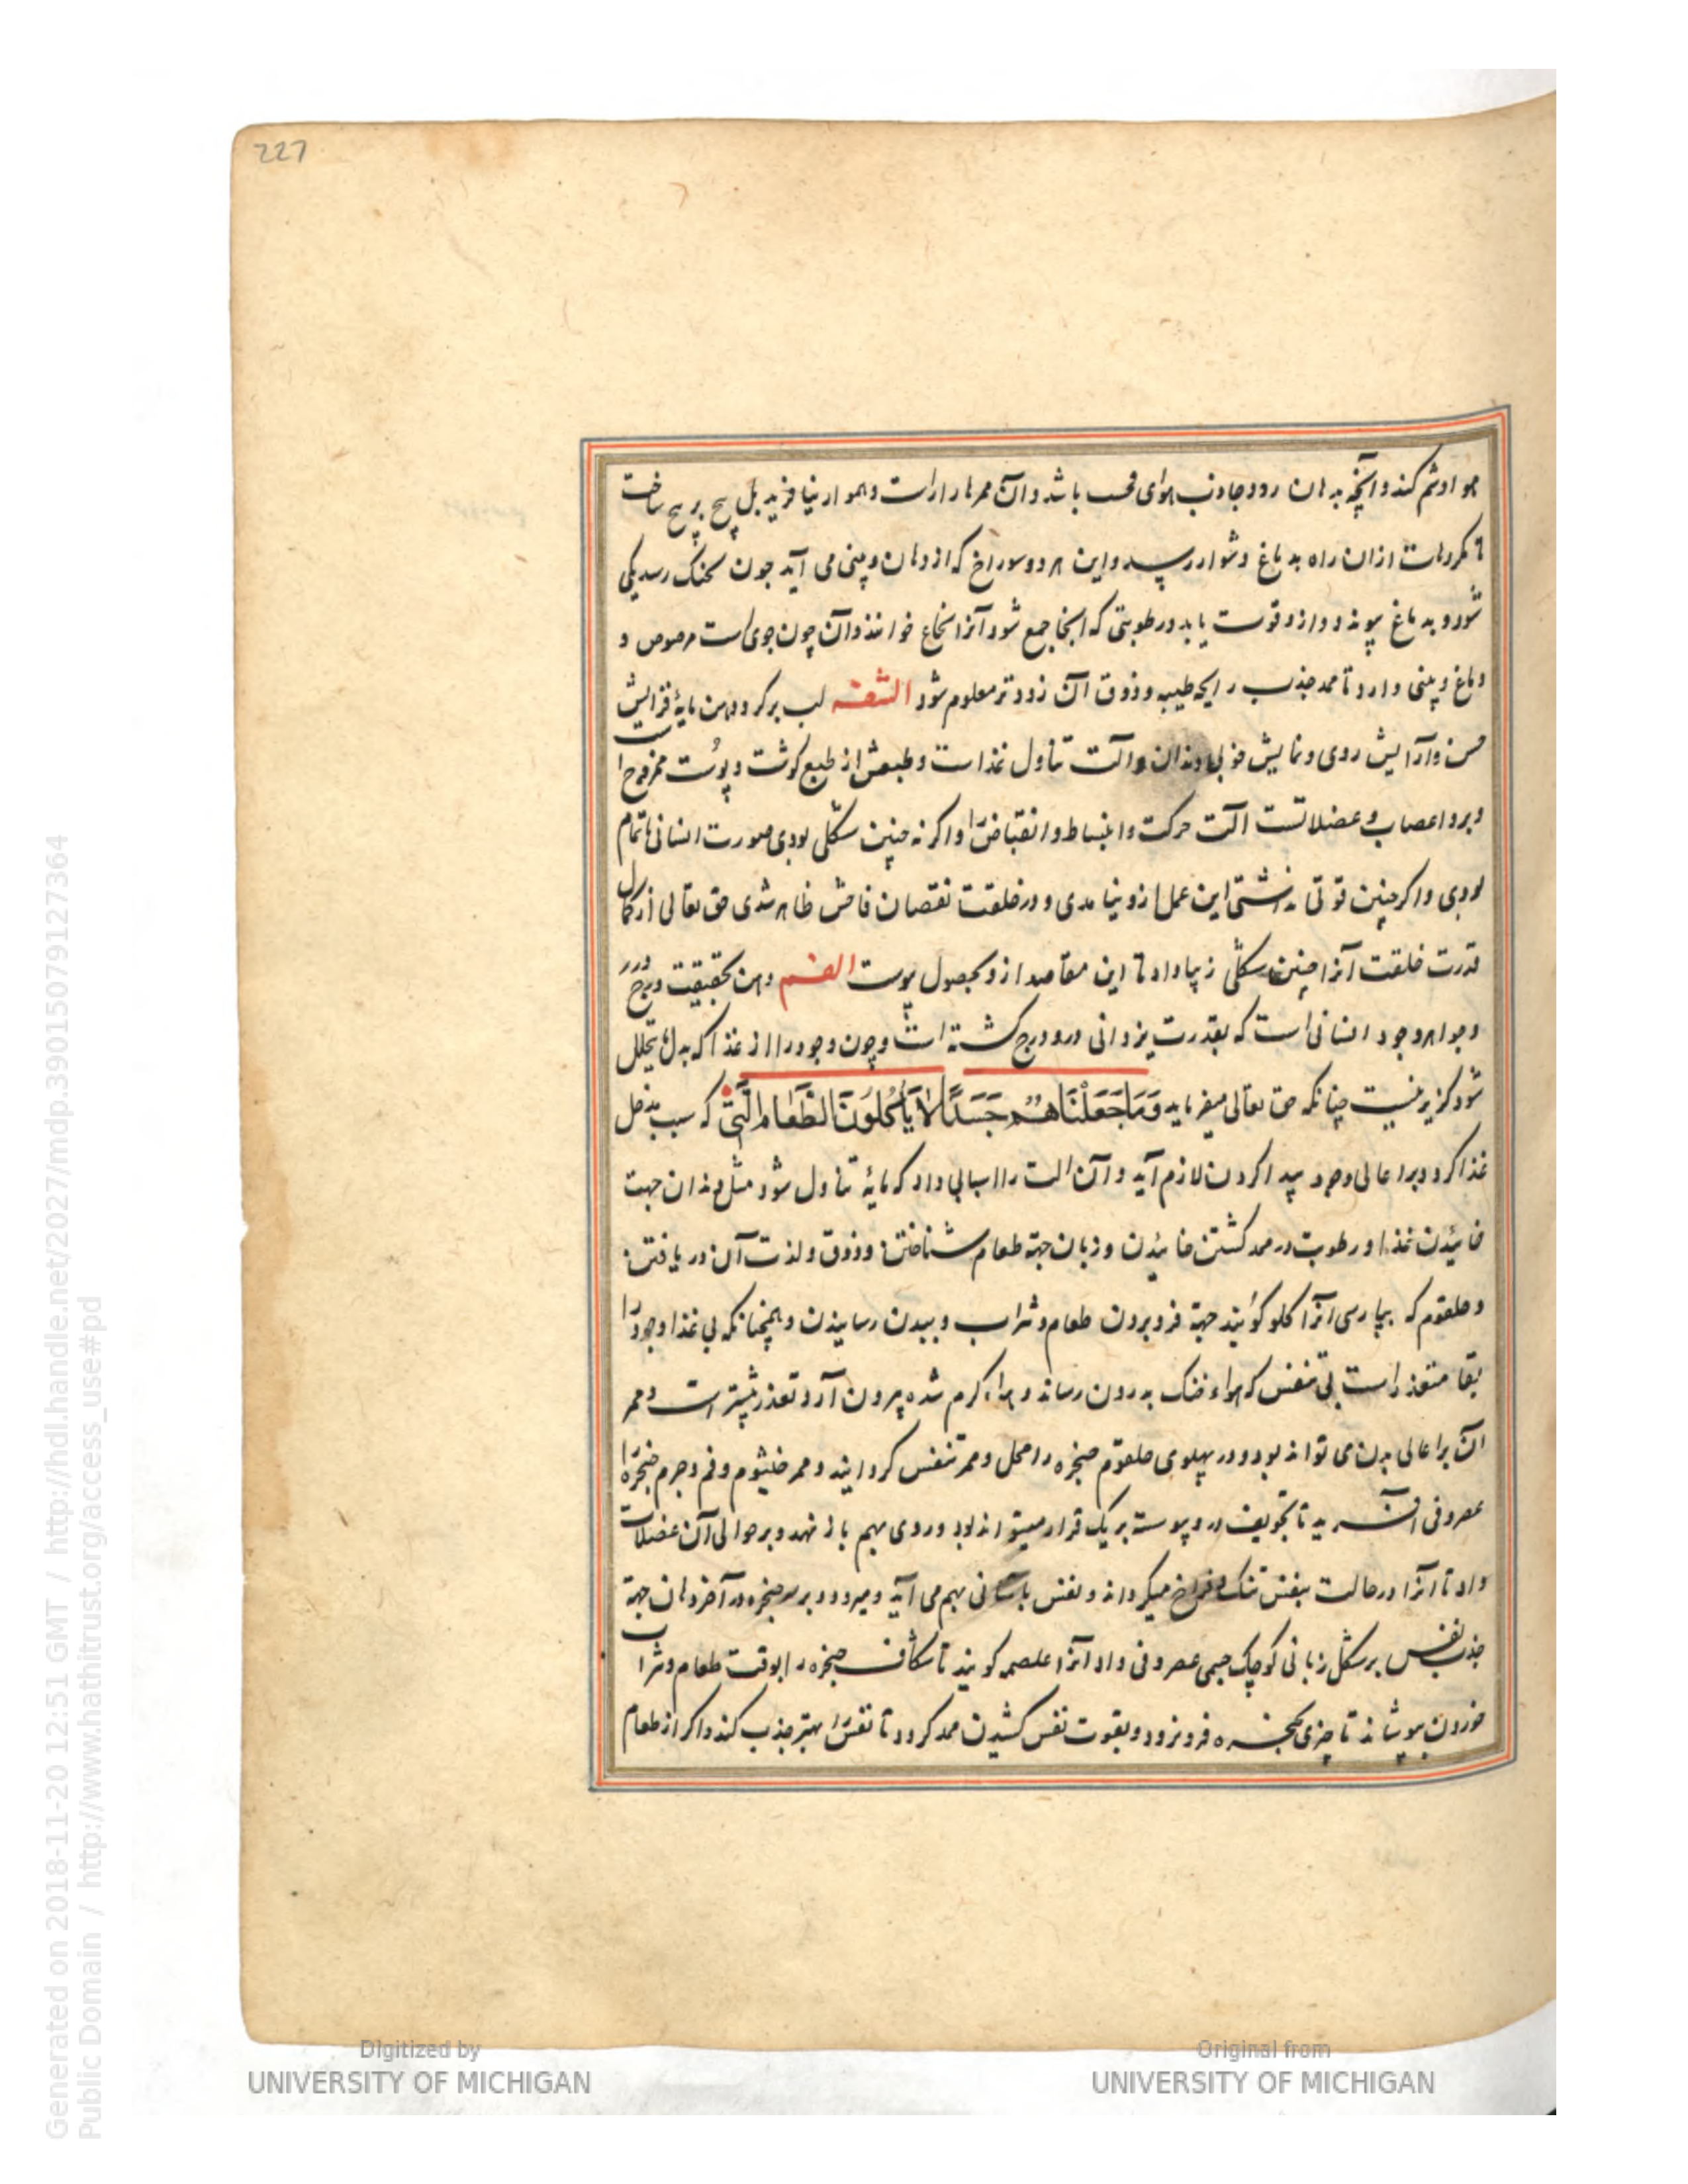 227
هوا و شم کند و آنچه بدهان رود جاذب هوای فحسب باشد و آن ممرها را راست و هموار نیافرید بل پیچ بر پیچ ساخت
تا مکروهات ازان راه بدماغ دشوار رسد و این هر دو سوراخ که از دهان و بینی می آید چون بحنک رسد یکی
شود و بدماغ پیوندد و ازو قوت یابد و رطوبتی که اینجا جمع شود آنرا نخاع خوانند و آن چون جوی است مرصوص و
دماغ و بینی دارد تا ممد جذب رایحه طیبه و ذوق آن زودتر معلوم شود الشفه لب برکرد دهن مایهٔ افزایش
حسن و آرایش روی و نمایش خوبی دندان و آلت تناول غذاست و طبعش از طبع کوشت و پوست ممزوج است
و برو اعصاب و عضلاتست آلت حرکت و انبساط و انقباض را و اکر نه چنین شکلی بودی صورت انسانی ناتمام
بودی و اکر چنین قوتی نداشتی این عمل ازو نیامدی و در خلقت نقصان فاحش ظاهر شدی حق تعالی از کمال
قدرت خلقت آنرا چنین شکلی زیبا داد تا این مقاصد ازو بحصول پیوست الفم دهن بحقیقت درج درر
و جواهر وجود انسانی است که بقدرت یزدانی درو درج کشته است و چون وجود را از غذا که بدل ما یتحلل
شود کزیر نیست چنانکه حق تعالی میفرماید وَمَا جَعَلْنَاهُمْ جَسَدًا لَا يَأْكُلُونَ الطَّعَامَ آلتی که سبب مدخل
غذا کردد بر اعالی وجود پیدا کردن لازم آید و آن الت را اسبابی داد که مایهٔ تناول شود مثل دندان جهت
خائیدن غذا و رطوبت در ممد کشتن خائیدن و زبان جهة طعام شناختن و ذوق و لذت آن دریافتن
و حلقوم که بپارسی آنرا کلو کویند جهة فرو بردن طعام و شراب و ببدن رسانیدن و همچنانکه بی غذا وجود را
بقا متعذر است بی تنفس که هواء خنک بدرون رساند و هواء کرم شده بیرون آرد تعذر بیشتر است و ممر
آن بر اعالی بدن می تواند بود و در پهلوی حلقوم حنجره را محل و ممر تنفس کردانید و ممر خیشوم و فم و جرم حنجره را
غضروفی آفرید تا تجویف درو پیوسته بر یک قرار میتواند بود و روی بهم باز نهد و بر حوالی آن عضلات
داد تا آنرا در حالت تنفس تنک و فراخ میکرداند و نفس بآسانی بهم می آید و میرود و بر سر حنجره در آخر دهان جهة
جذب نفس بر شکل زبانی کوچک جسمی غضروفی داد آنرا غلصمه کویند تا شکاف حنجره را بوقت طعام و شراب
خوردن بپوشاند تا چیزی بحنجره فرو نرود و بقوت نفس کشیدن ممد کردد تا نفس را بهتر جذب کند و اکر از طعام
Generated on 2018-11-20 12:51 GMT / http://hdl.handle.net/2027/mdp.39015079127364
Public Domain / http://www.hathitrust.org/access_use#pd
Digitized by
UNIVERSITY OF MICHIGAN
Original from
UNIVERSITY OF MICHIGAN